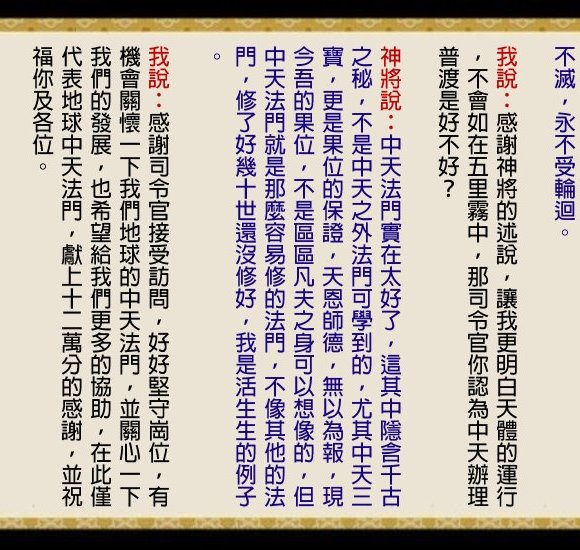 不滅，永不受輪迴。
我說：感謝神將的述說，讓我更明白天體的運行
，不會如在五里霧中，那司令官你認為中天辦理
普渡是好不好？
神將說：中天法門實在太好了，這其中隱含千古
之秘，不是中天之外法門可學到的，尤其中天三
寶，更是果位的保證，天恩師德，無以為報，現
今吾的果位，不是區區凡夫之身可以想像的，但
中天法門就是那麼容易修的法門，不像其他的法
門，修了好幾十世還沒修好，我是活生生的例子
。
我說：感謝司令官接受訪問，好好堅守崗位，有
機會關懷一下我們地球的中天法門，並關心一下
我們的發展，也希望給我們更多的協助，在此僅
代表地球中天法門，獻上十二萬分的感謝，並祝
福你及各位。